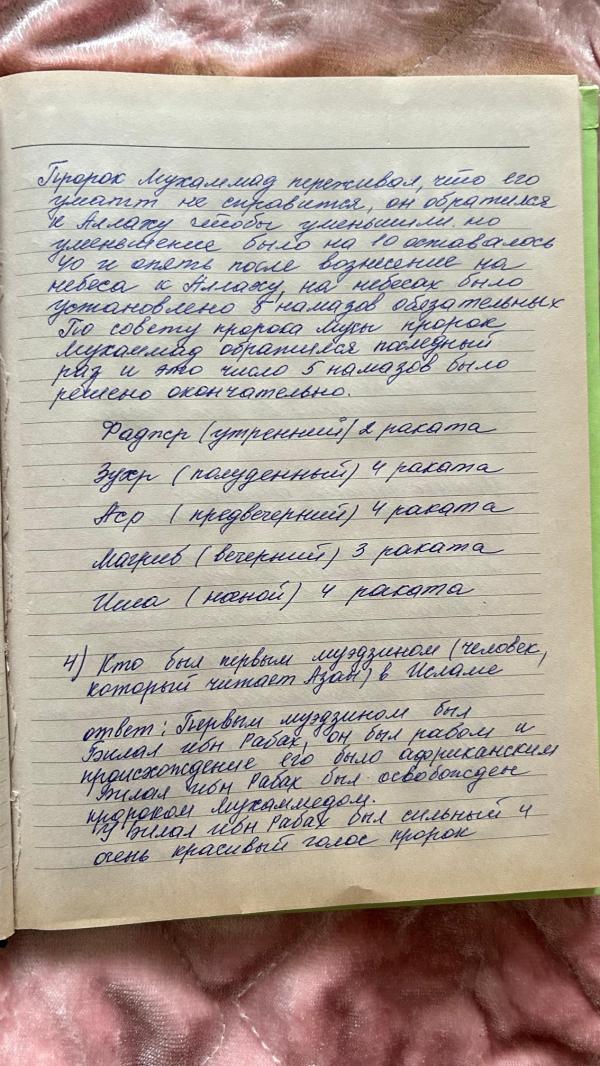 Пророк Мухаммад переживал, что его
уматт не справится, он обратился
к Аллаху чтобы уменьшили. но
уменьшение было на 10 оставалось
40 и опять после вознесение на
небеса к Аллаху, на небесах было
установлено 5 намазов обязательных
По совету пророка Мусы пророк
Мухаммад обратился последный
раз и это число 5 намазов было
решено окончательно.
Фаджр (утренний) 2 раката
Зухр (полуденный) 4 раката
Аср (предвечерний) 4 раката
Магриб (вечерний) 3 раката
Иша (ночной) 4 раката
4) Кто был первым муэдзином (человек,
который читает Азан) в Исламе
ответ: Первым муэдзином был
Билал ибн Рабах, он был рабом и
происхождение его было африканским
Билал ибн Рабах был освобожден
пророком Мухаммедом.
У Билал ибн Рабах был сильный и
очень красивый голос пророк